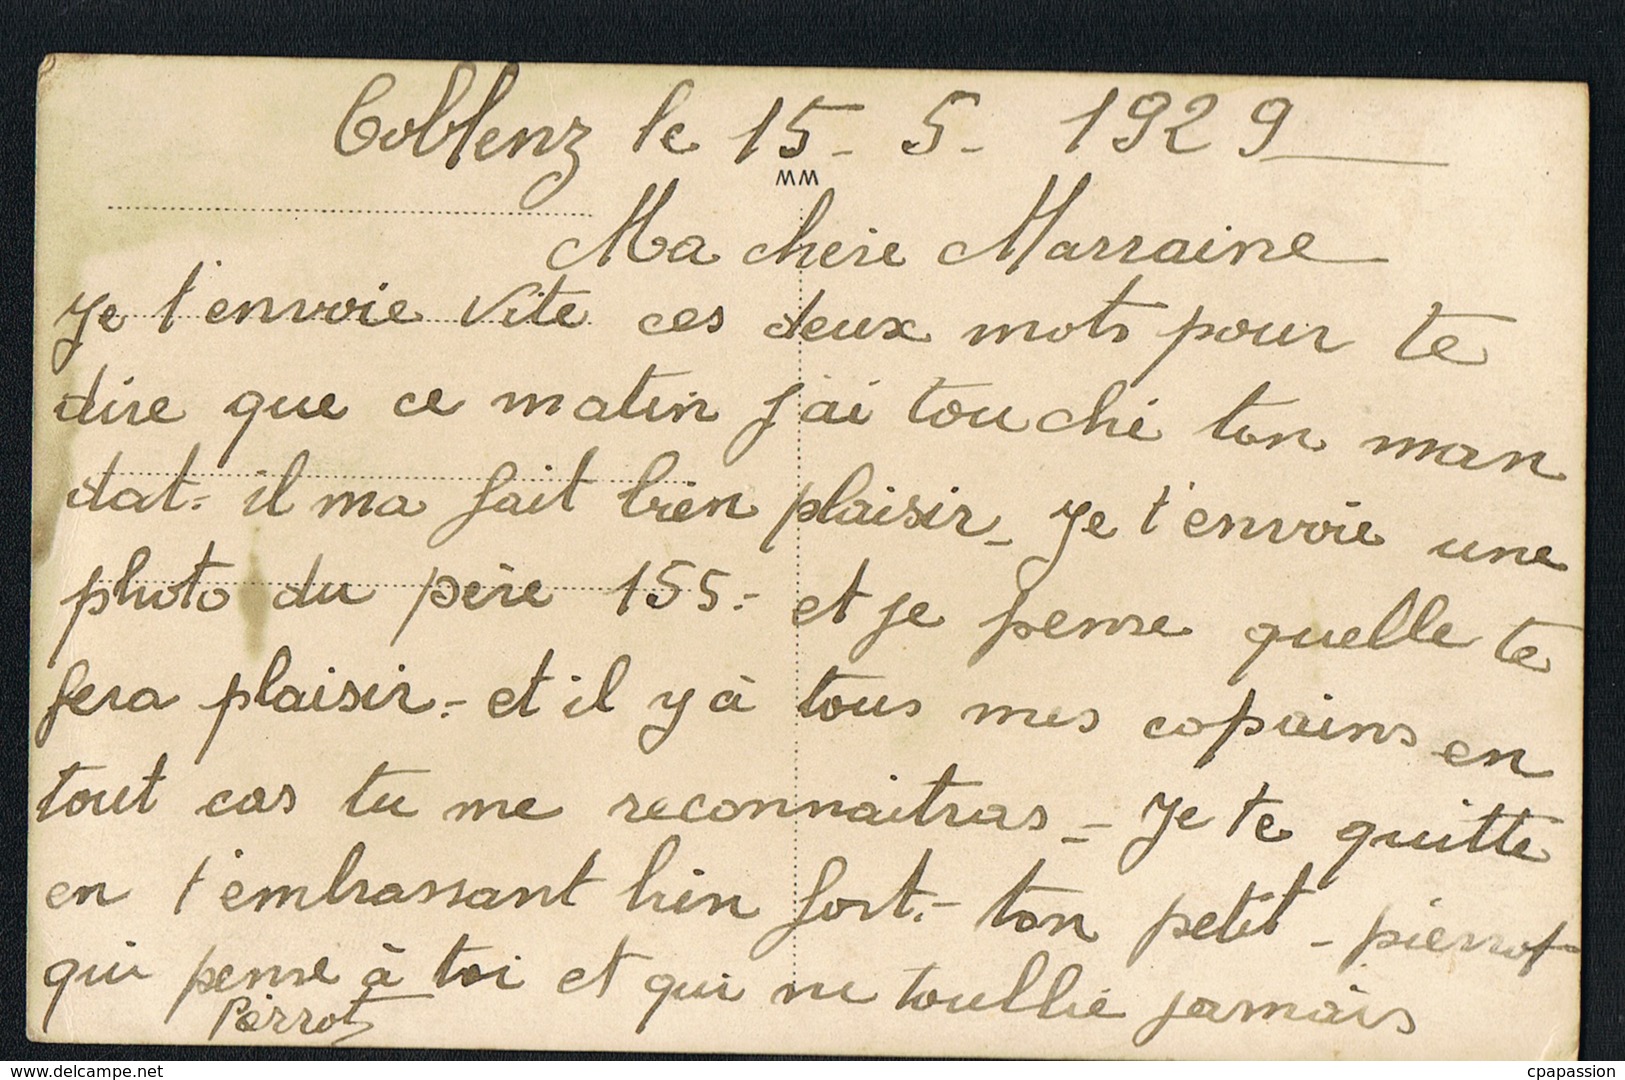 Coblenz le 15 - 5 - 1929
MM
Ma chere Marraine
Je t'envoie vite ces deux mots pour te
dire que ce matin j'ai touché ton man
dat - il ma fait bien plaisir - Je t'envoie une
photo du père 155 - et je pense quelle te
fera plaisir - et il y à tous mes copains en
tout cas tu me reconnaitras - Je te quitte
en t'embrassant bien fort - ton petit - pierrot
qui pense à toi et qui ne toublie jamais
Pierrot
delcampe.net
cpapassion